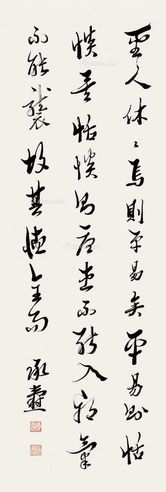 聖人休〻焉則平易矣平易則恬
惔矣恬惔則憂患不能入邪氣
不能襲故其德全而 承燾